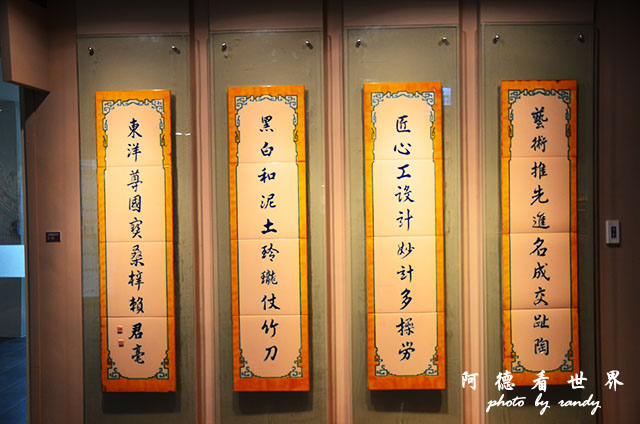 藝術推先進名成交趾陶
匠心工設計妙計多操勞
黑白和泥土玲瓏仗竹刀
東洋尊國寶桑梓賴君毫
阿德看世界
photo by randy